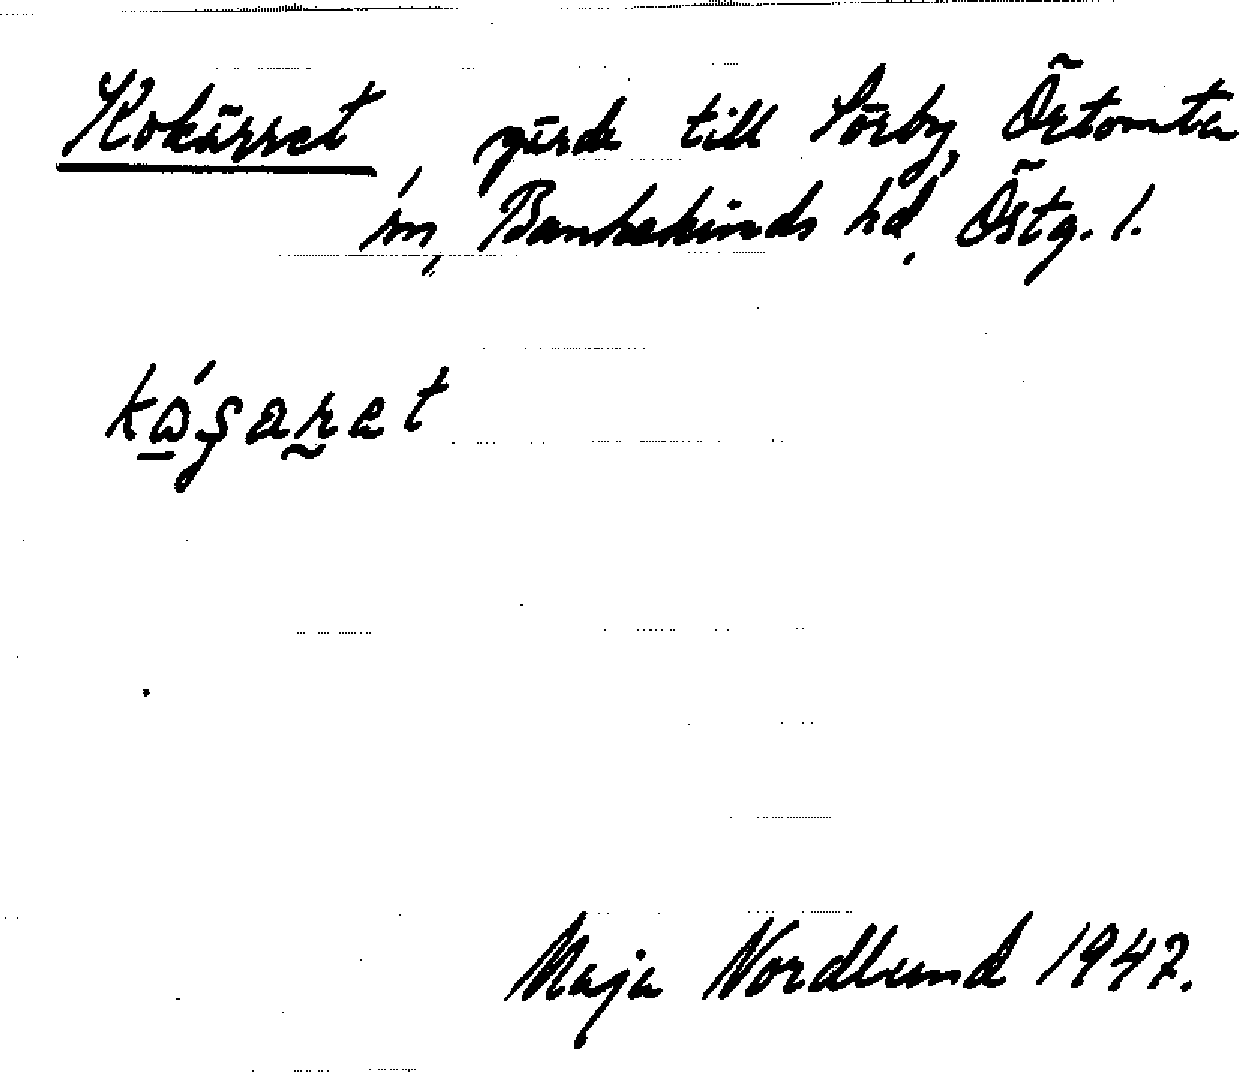 Kokärret, gärde till Sörby, Örtomta
sn, Bankekinds hd, Östg. l.
kóşaret
Maja Nordlund 1947.